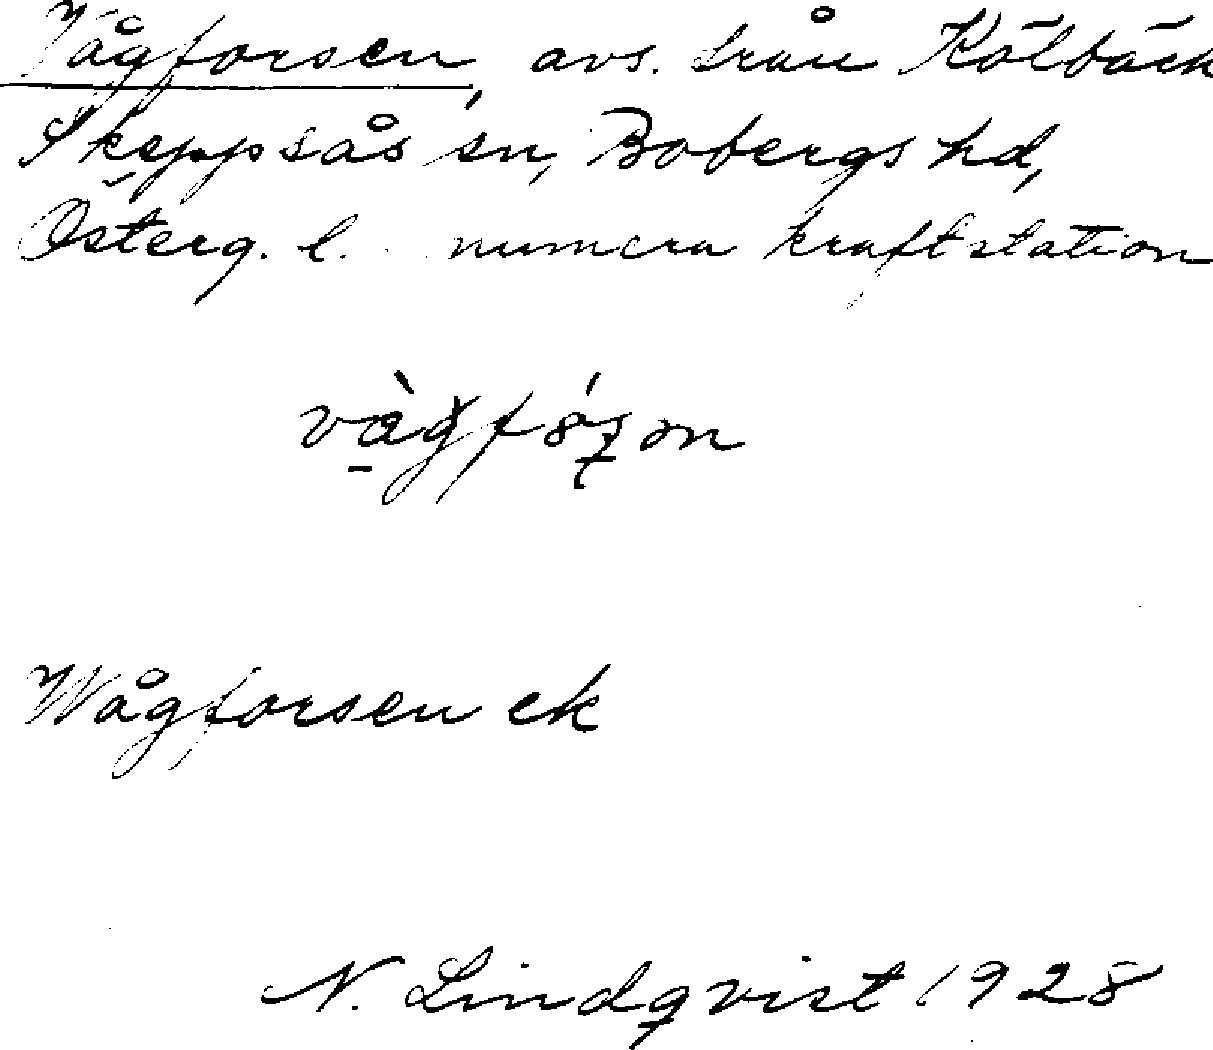 Vågforsen, avs. från Kölbäck
Skeppsås sn, Bobergs hd,
Österg. l. numera kraftstation
Wågforsen ek
N. Lindqvist 1928